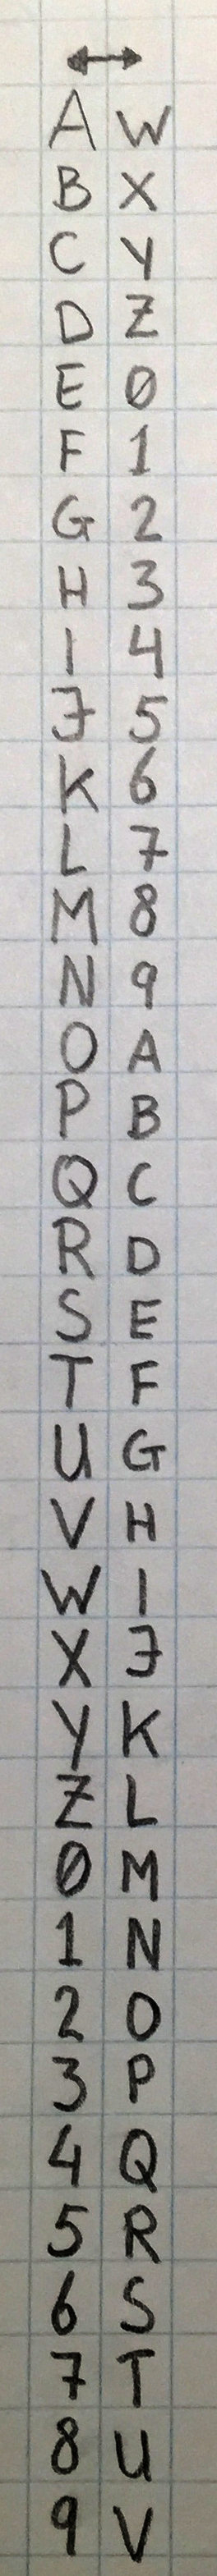 A W
B X
C Y
D Z
E 0
F 1
G 2
H 3
I 4
J 5
K 6
L 7
M 8
N 9
O A
P B
Q C
R D
S E
T F
U G
V H
W I
X J
Y K
Z L
0 M
1 N
2 O
3 P
4 Q
5 R
6 S
7 T
8 U
9 V